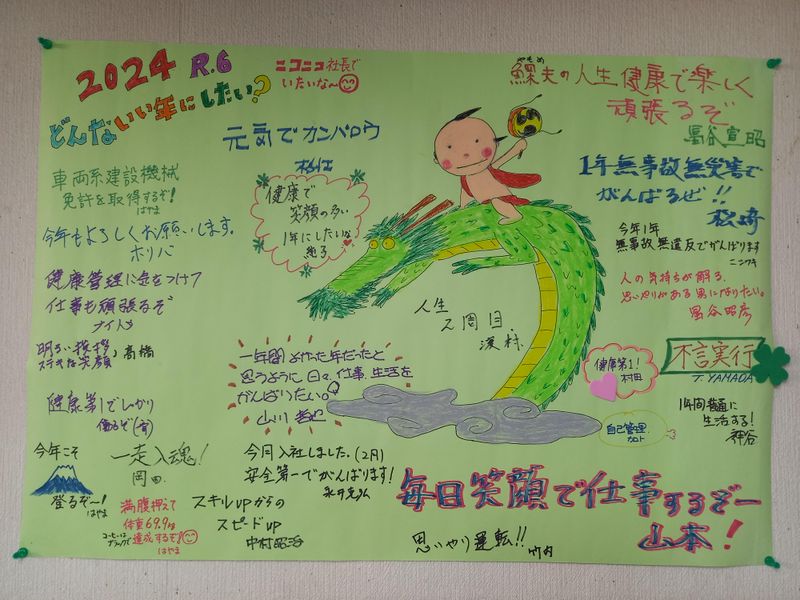 2024 R.6
どんないい年にしたい?
ニコニコ社長で
いたいな〜
鰥夫の人生健康で楽しく
やもめ
頑張るぞ
元気でガンバロウ
車両系建設機械
免許を取得するぞ!
はやま
健康で
笑顔の多い
1年にしたいな
1年無事故無災害で
がんばるぜ!!
松崎
今年もよろしくお願いします。
ホリバ
今年1年
無事故無違反でがんばります
健康管理に気をつけて
仕事も頑張るぞ
ナイトう
人の気持ちが解る、
思いやりがある男になりたい。
人生
2周目
濱村
明るい挨拶
ステキな笑顔
高橋
一年間よかった年だったと
思うように日々、仕事、生活を
がんばりたい。
山川
健康第1!
村田
不言実行
T.YAMADA
健康第1でしっかり
働くぞ
自己管理
カトト
1年間普通に
生活する!
神谷
今年こそ
登るぞ〜!
はやま
一走入魂!
岡田
今月入社しました。(2月)
安全第一でがんばります!
毎日笑顔で仕事するぞー
山本!
満腹押えて
体重69.9kg
コーヒーは
ブラックで
達成するぞ!
はやま
スキルupからの
スピードup
中村昭浩
思いやり運転!!
竹内